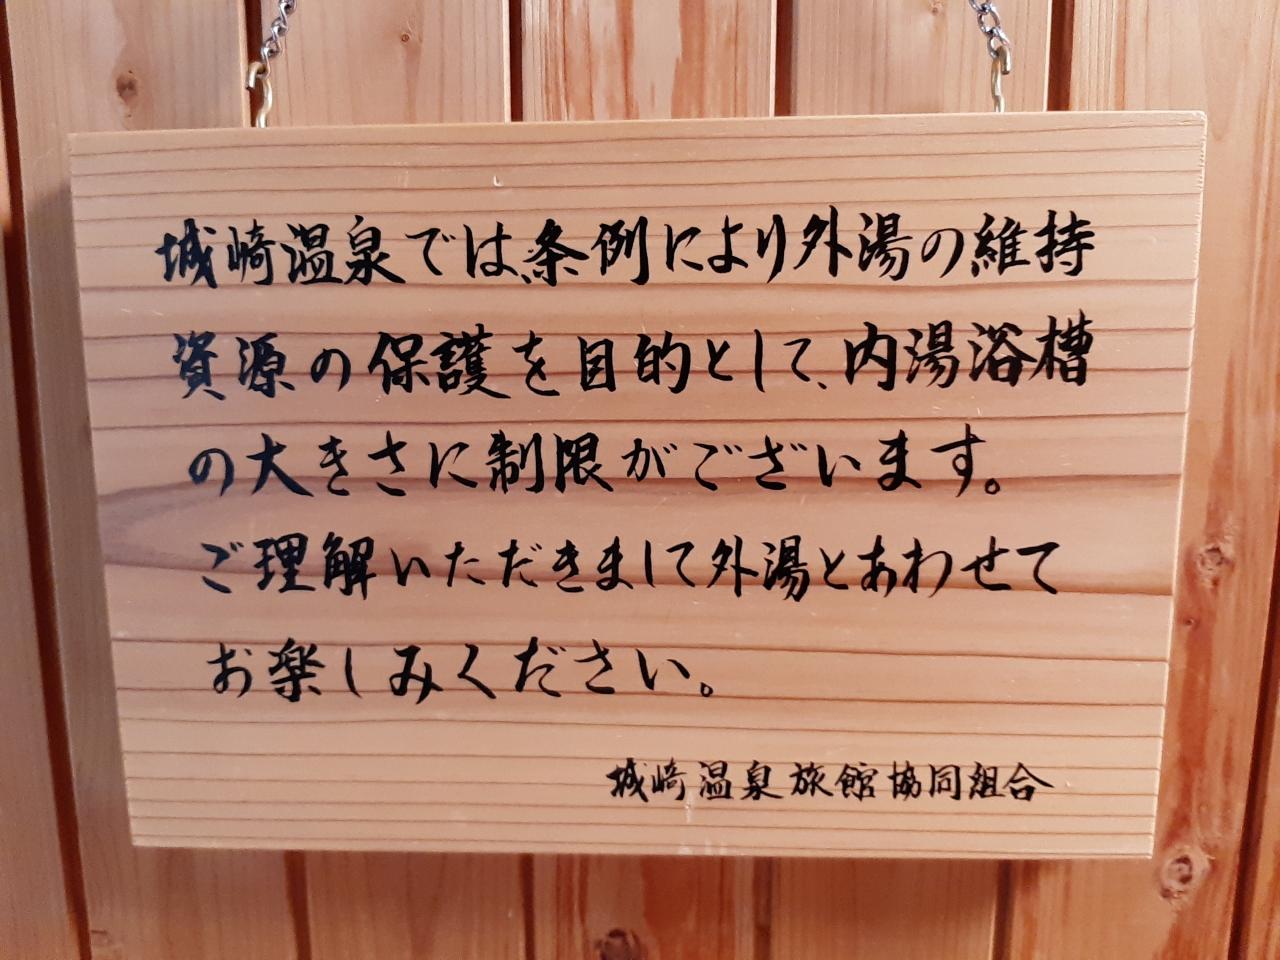 城崎温泉では、条例により外湯の維持
資源の保護を目的として、内湯浴槽
の大きさに制限がございます。
ご理解いただきまして外湯とあわせて
お楽しみください。
城崎温泉旅館協同組合